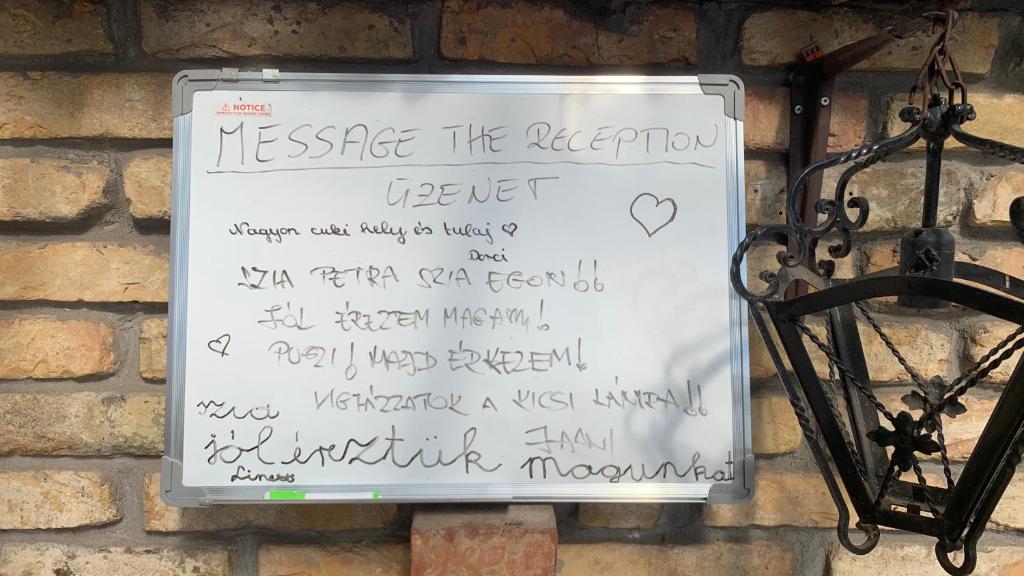 NOTICE
MESSAGE THE RECEPTION
ÜZENET
Nagyon cuki hely és tulaj ♡
Dorci
SZIA PETRA SZIA EGON!!
JÓL ÉREZTEM MAGAM!
PUSZI! MAJD ÉRKEZEM!
VIGYÁZZATOK A KICSI LÁMPÁRA!!
szia
JAANI
jól éreztük magunkat